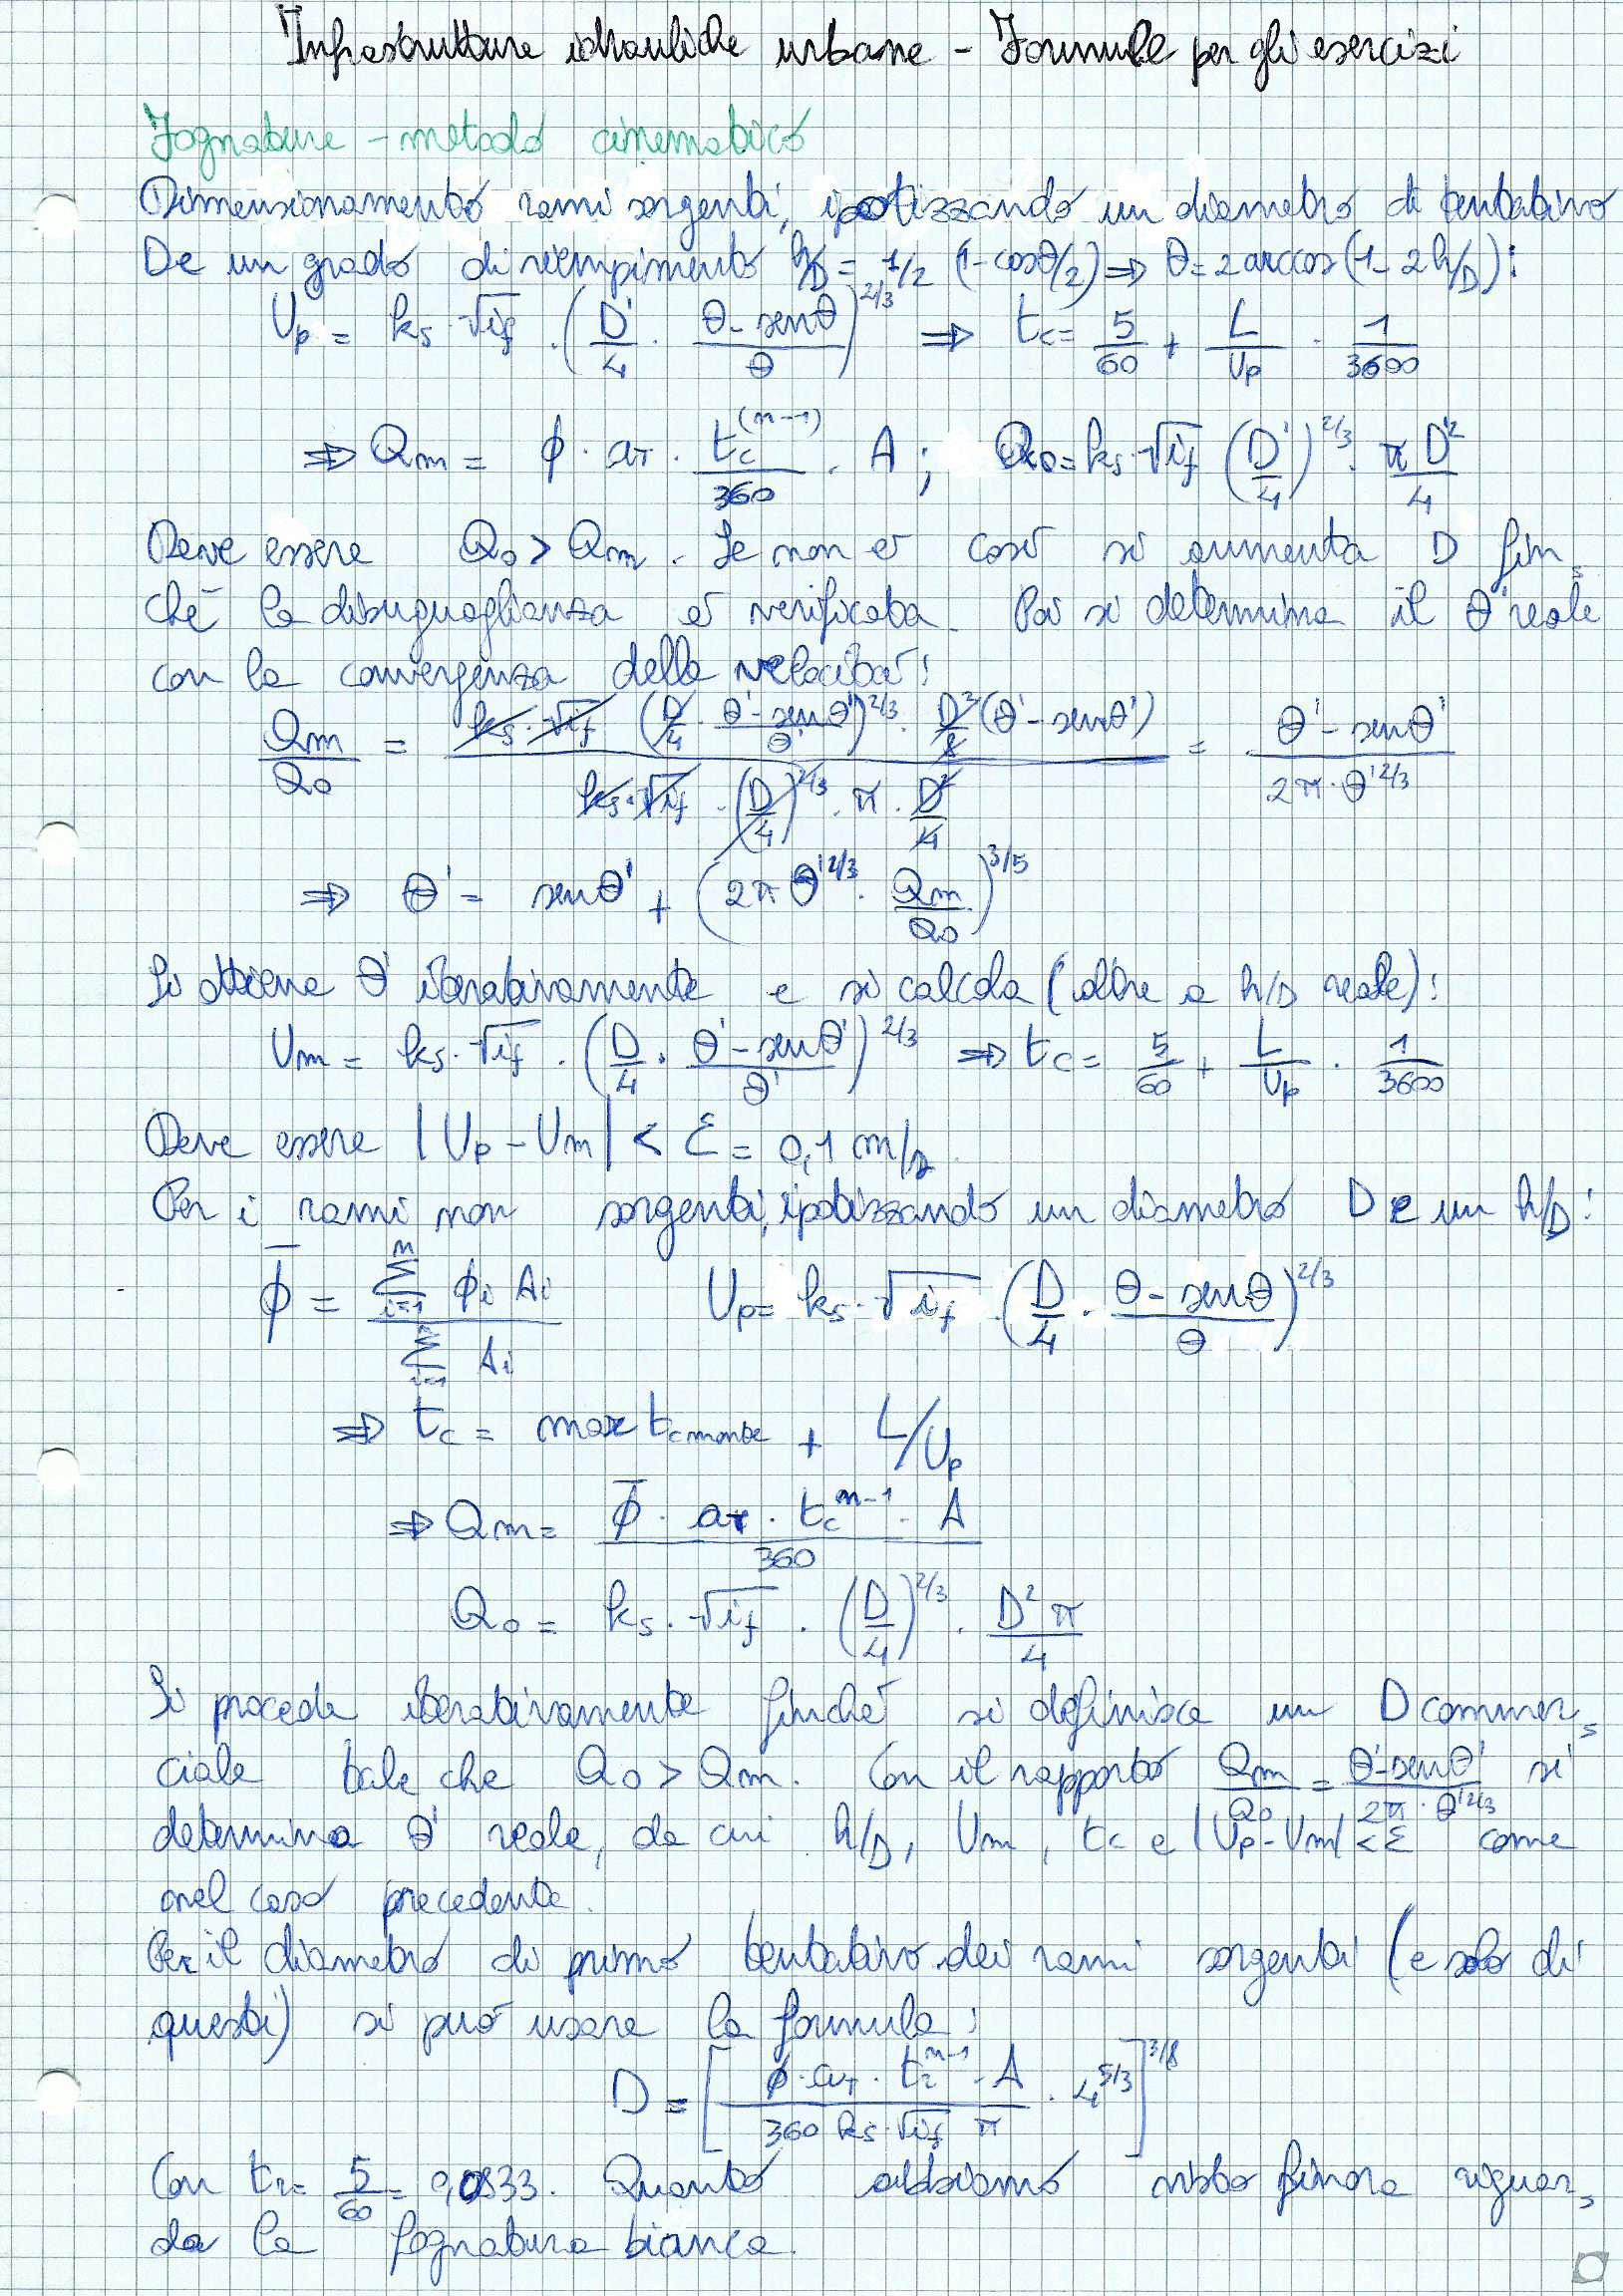 Infrastrutture idrauliche urbane - Formule per gli esercizi
Fognature - metodo cinematico
Dimensionamento rami sorgenti, ipotizzando un diametro di tentativo
D e un grado di riempimento h/D = 1/2 (1-cosθ/2) ⇒ θ = 2 arccos(1-2h/D):
Up = ks·√if · (D/4 · (θ-senθ)/θ)^2/3 ⇒ tc = 5/60 + L/Up · 1/3600
⇒ Qm = ϕ · aT · tc^(n-1)/360 · A; Q0 = ks·√if (D/4)^2/3 · πD²/4
Deve essere Q0 > Qm. Se non è così si aumenta D fin,
ché la disuguaglianza è verificata. Poi si determina il θ' reale
con la convergenza della velocità:
Qm/Q0 = ks·√if (D/4 · (θ'-senθ')/θ')^2/3 · D²/8 (θ'-senθ') / ks·√if · (D/4)^2/3 · π · D²/4 = θ'-senθ' / 2π·θ'^2/3
⇒ θ' = senθ' + (2πθ'^2/3 · Qm/Q0)^3/5
Si ottiene θ' iterativamente e si calcola (oltre a h/D reale):
Um = ks·√if · (D/4 · (θ'-senθ')/θ')^2/3 ⇒ tc = 5/60 + L/Up · 1/3600
Deve essere |Up-Um| < ε = 0,1 m/s
Per i rami non sorgenti, ipotizzando un diametro D e un h/D:
ϕ̄ = Σ i=1 n ϕi Ai / Σ i=1 n Ai Up = ks·√if · (D/4 · (θ-senθ)/θ)^2/3
⇒ tc = max tc monte + L/Up
⇒ Qm = ϕ̄ · aT · tc^n-1 · A / 360
Q0 = ks·√if · (D/4)^2/3 · D²π/4
Si procede iterativamente finché si definisce un D commer,
ciale tale che Q0 > Qm. Con il rapporto Qm/Q0 = θ'-senθ' / 2π·θ'^2/3 si
determina θ' reale, da cui h/D, Um, tc e |Up-Um| < ε come
nel caso precedente.
Per il diametro di primo tentativo dei rami sorgenti (e solo di
questi) si può usare la formula:
D = [ϕ·aT·tr^n-1·A / 360 ks·√if π · 4^5/3]^3/8
Con tr = 5/60 = 0,0833. Quanto abbiamo visto finora riguar,
da la fognatura bianca.